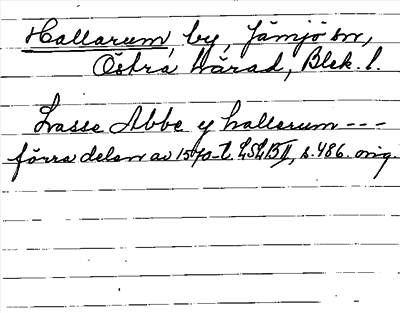 Hallarum, by, Jämjö sn,
Östra härad, Blek. l.
Lasse Abbe y hallerum ---
förra delen av 1570-t. , s. 486. orig.